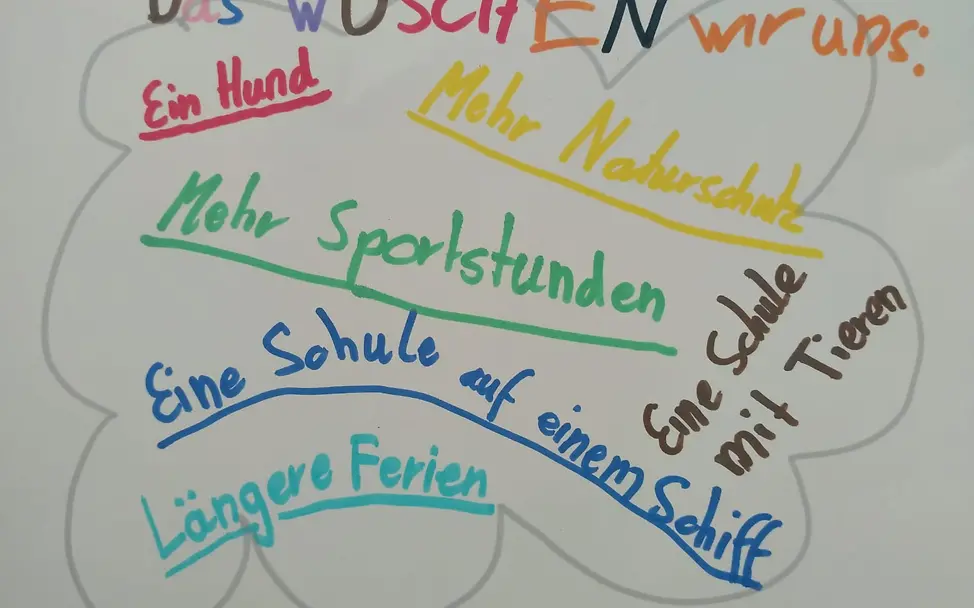 Das WÜSCHEN wir uns:
Ein Hund
Mehr Naturschutz
Mehr Sportstunden
Eine Schule
mit Tieren
Eine Schule auf einem Schiff
Längere Ferien